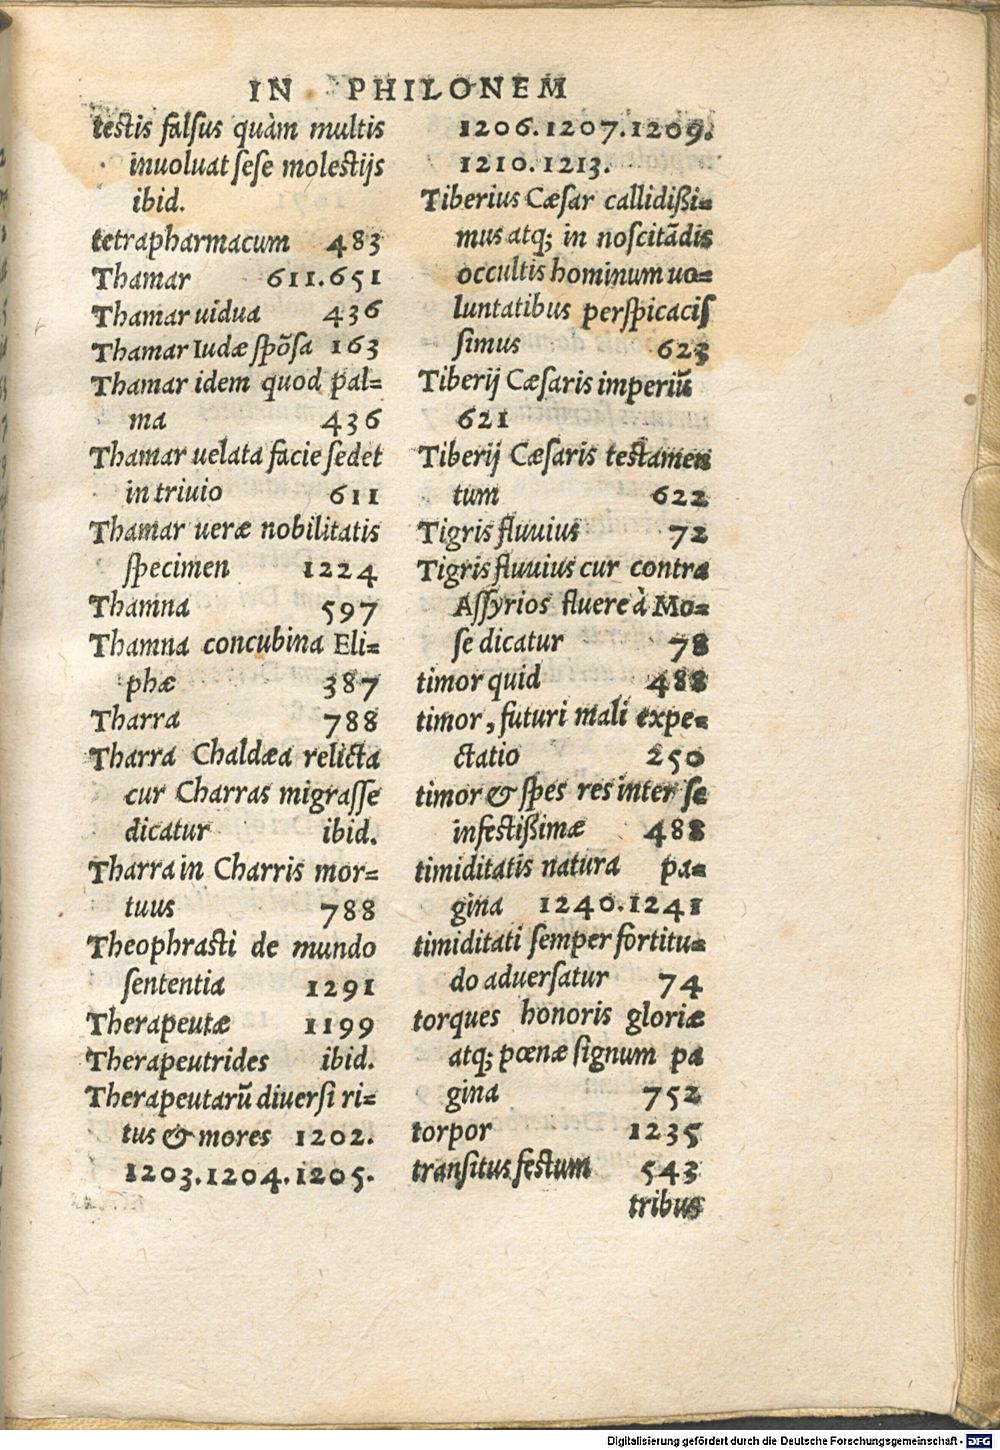 IN PHILONEM
testis falsus quàm multis
inuoluat sese molestijs
ibid.
tetrapharmacum 483
Thamar 611.651
Thamar uidua 436
Thamar Iudæ spõsa 163
Thamar idem quod pal=
ma 436
Thamar uelata facie sedet
in triuio 611
Thamar ueræ nobilitatis
specimen 1224
Thamna 597
Thamna concubina Eli=
phæ 387
Tharra 788
Tharra Chaldæa relicta
cur Charras migrasse
dicatur ibid.
Tharra in Charris mor=
tuus 788
Theophrasti de mundo
sententia 1291
Therapeutæ 1199
Therapeutrides ibid.
Therapeutarũ diuersi ri=
tus & mores 1202.
1203.1204.1205.
1206.1207.1209.
1210.1213.
Tiberius Cæsar callidißi=
mus atq; in noscitãdis
occultis hominum uo=
luntatibus perspicacis
simus 623
Tiberij Cæsaris imperiũ
621
Tiberij Cæsaris testamen
tum 622
Tigris fluuius 72
Tigris fluuius cur contra
Assyrios fluere à Mo=
se dicatur 78
timor quid 488
timor, futuri mali expe=
ctatio 250
timor & spes res inter se
infestißimæ 488
timiditatis natura pa=
gina 1240.1241
timiditati semper fortitu=
do aduersatur 74
torques honoris gloriæ
atq; pœnæ signum pa
gina 752
torpor 1235
transitus festum 543
tribus
Digitalisierung gefördert durch die Deutsche Forschungsgemeinschaft - DFG